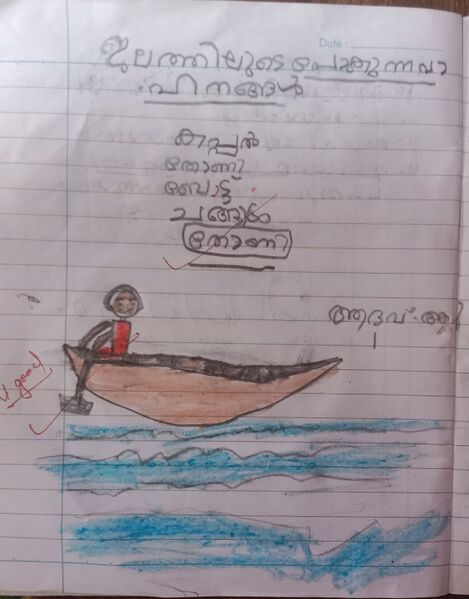 Date :
ജലത്തിലൂടെ പോകുന്നവാ
ഹിനങ്ങൾ
കപ്പൽ
തോണി
ബോട്ട്
ചങ്ങാടം
തോണി
ആദവ്.ആർ
1
V good